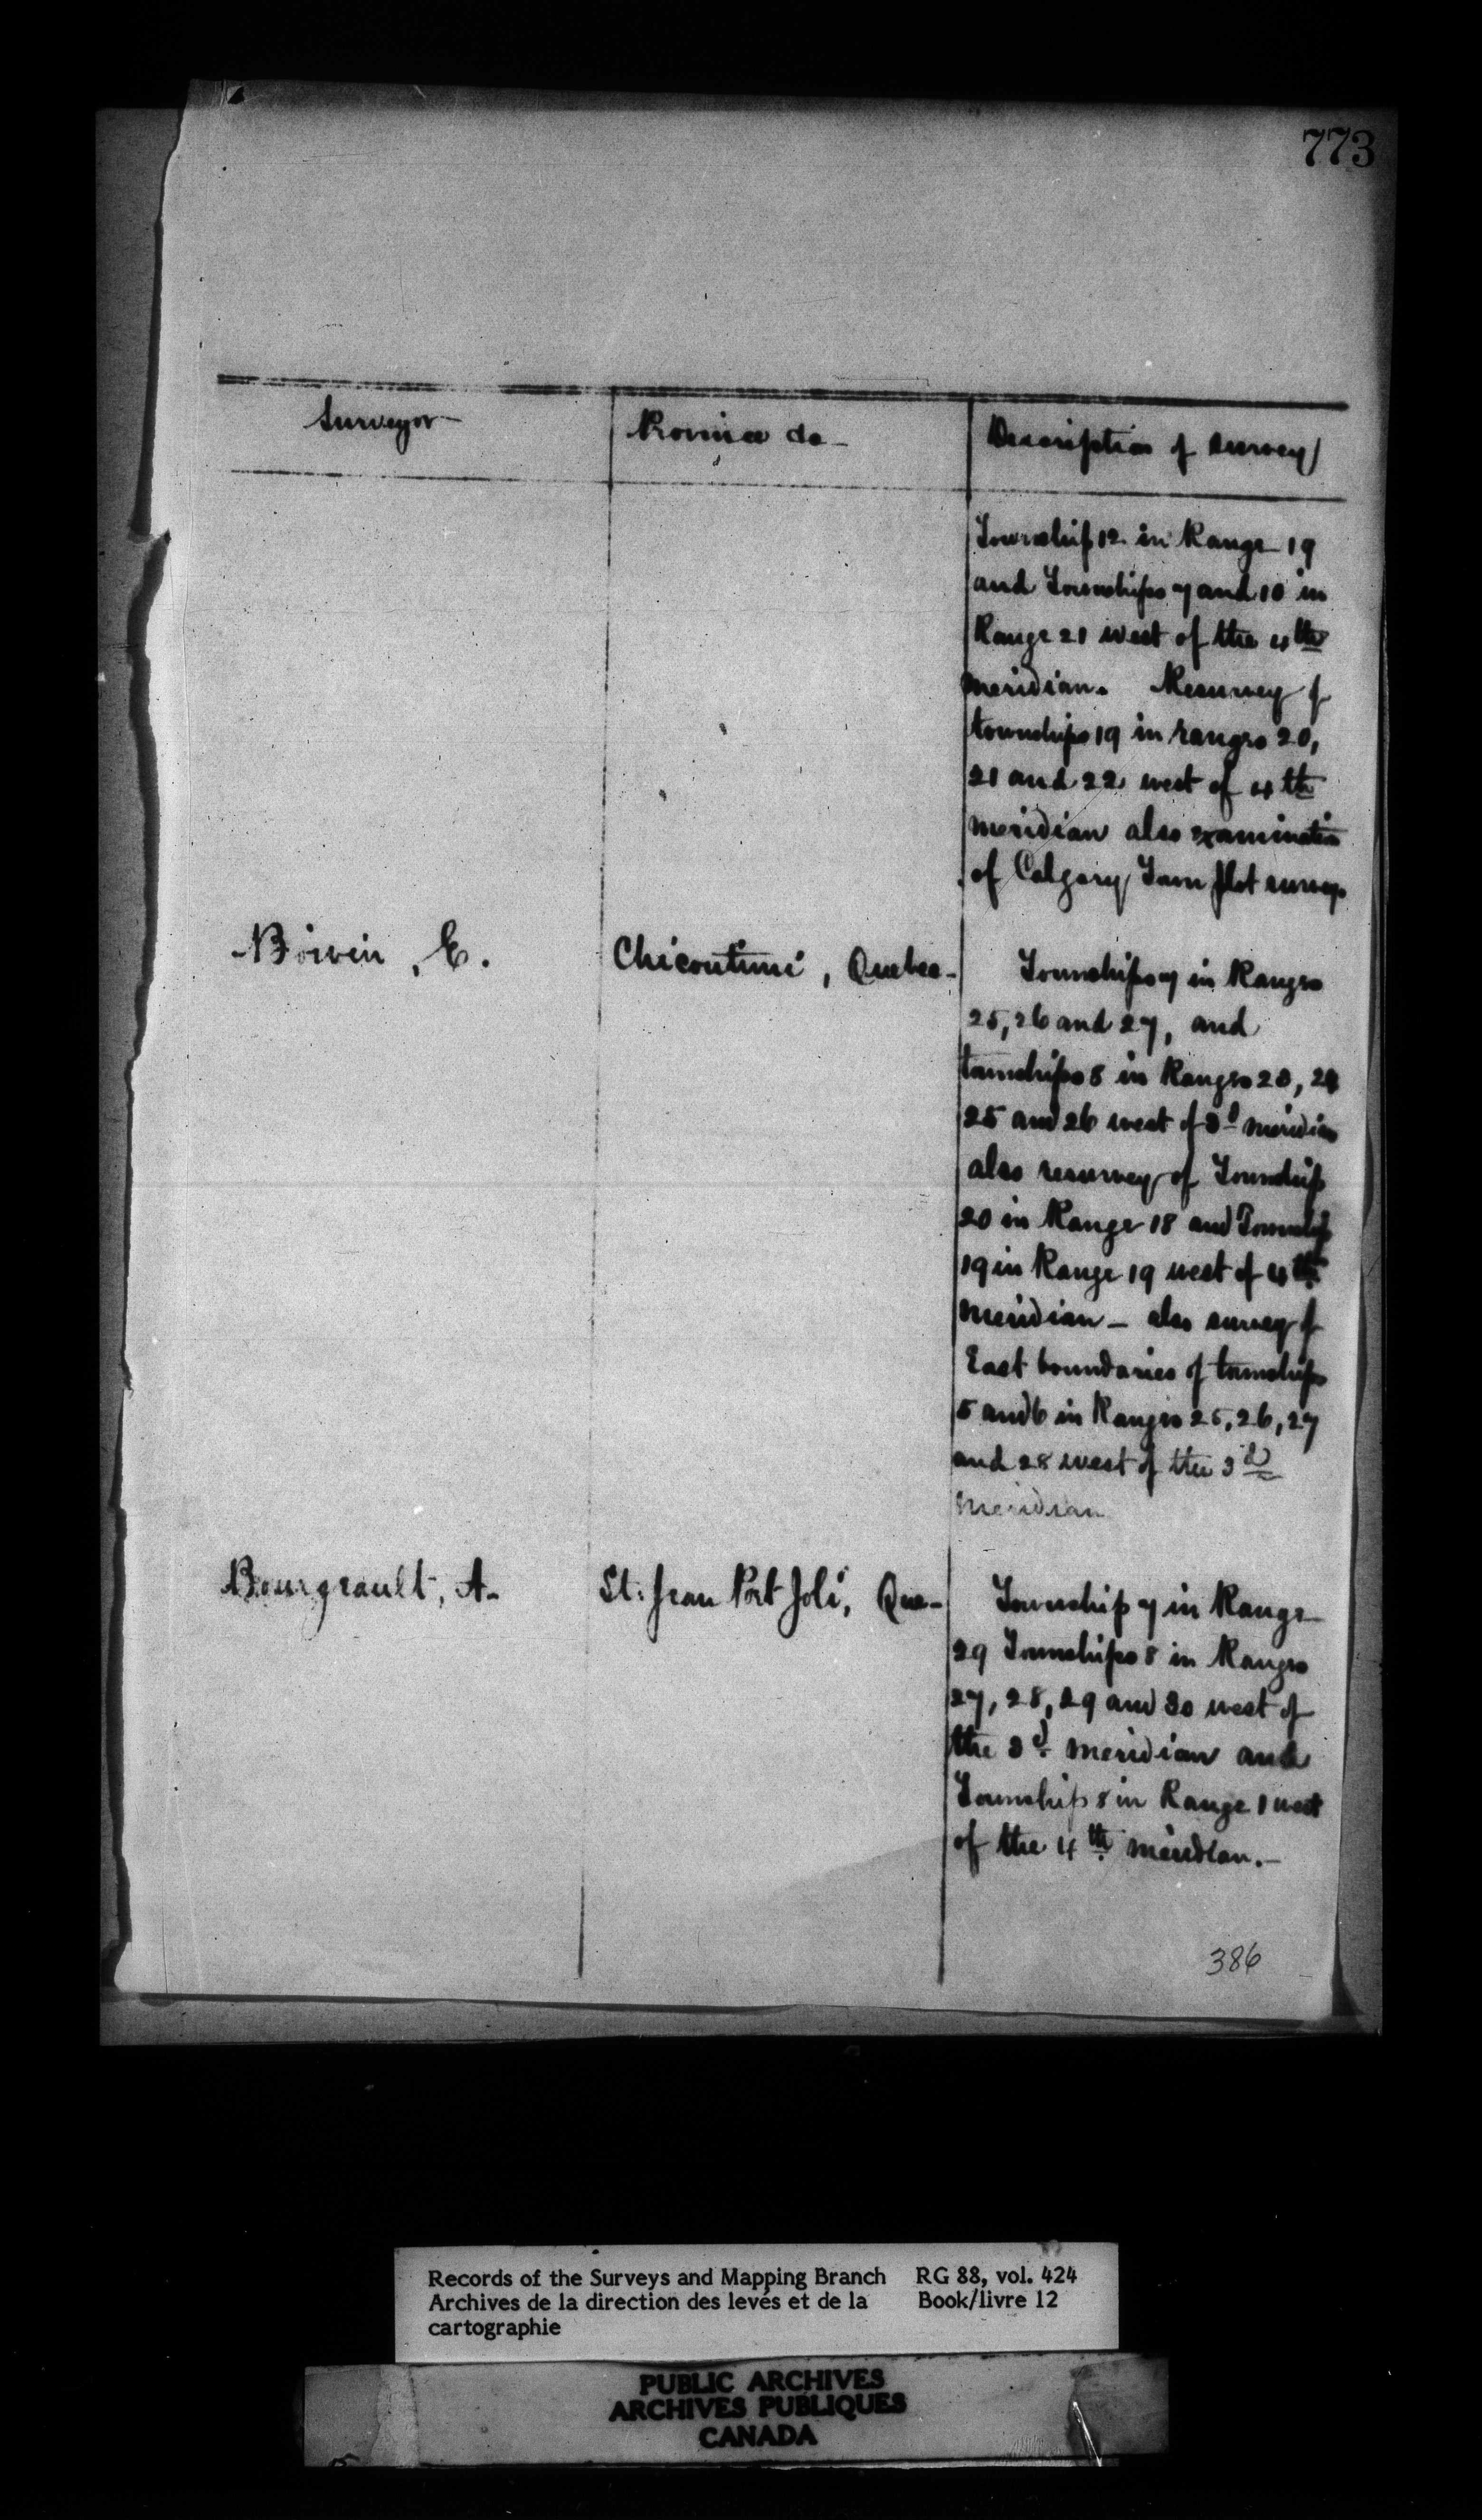 773
Surveyor
Province do
Description of Survey
Township 12 in Range 19
and Townships 7 and 10 in
Range 21 west of the 4th
meridian. Resurvey of
townships 19 in ranges 20,
21 and 22 west of 4th
meridian also examination
of Calgary Town plot survey.
Boivin, E.
Chicoutimi, Quebec
Townships 7 in Ranges
25, 26 and 27, and
townships 8 in Ranges 23, 24
25 and 26 west of 3d meridian
also resurvey of Township
20 in Range 18 and Township
19 in Range 19 west of 4th
Meridian - also survey of
East boundaries of townships
5 and 6 in Ranges 25, 26, 27
and 28 west of the 3d
Meridian
Bourgeault, A.
St. Jean Port Joli, Que
Township 7 in Range
29 Townships 8 in Ranges
27, 28, 29 and 30 west of
the 3d meridian and
Township 8 in Range 1 west
of the 4th meridian.
386
Records of the Surveys and Mapping Branch RG 88, vol. 424
Archives de la direction des levés et de la Book/livre 12
cartographie
PUBLIC ARCHIVES
ARCHIVES PUBLIQUES
CANADA